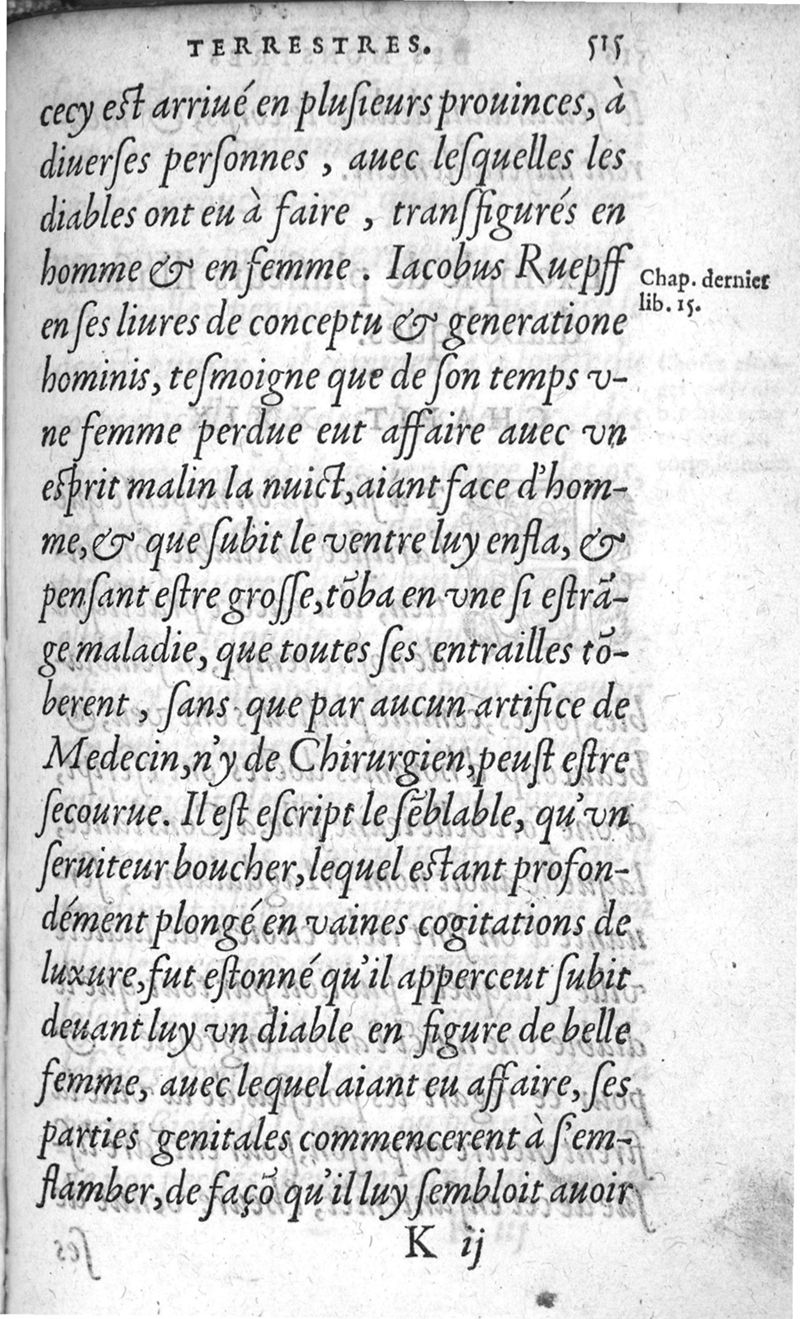 TERRESTRES. 515
cecy est arriué en pluſieurs prouinces, à
diuerſes perſonnes , auec leſquelles les
diables ont eu à faire , tranſfigurés en
homme & en femme . Iacobus Ruepff
en ſes liures de conceptu & generatione
hominis, teſmoigne que de ſon temps v-
ne femme perdue eut affaire auec vn
eſprit malin la nuict, aiant face d'hom-
me, & que ſubit le ventre luy enfla, &
penſant eſtre groſſe, tõba en vne ſi eſtrã-
ge maladie, que toutes ſes entrailles tõ-
berent , ſans que par aucun artifice de
Medecin, n'y de Chirurgien, peuſt eſtre
ſecourue. Il eſt eſcript le ſẽblable, qu'vn
ſeruiteur boucher, lequel estant profon-
dément plongé en vaines cogitations de
luxure, fut eſtonné qu'il apperceut ſubit
deuant luy vn diable en figure de belle
femme, auec lequel aiant eu affaire, ſes
parties genitales commencerent à ſ'em-
flamber, de façõ qu'il luy ſembloit auoir
K ij
Chap. dernier
lib. 15.